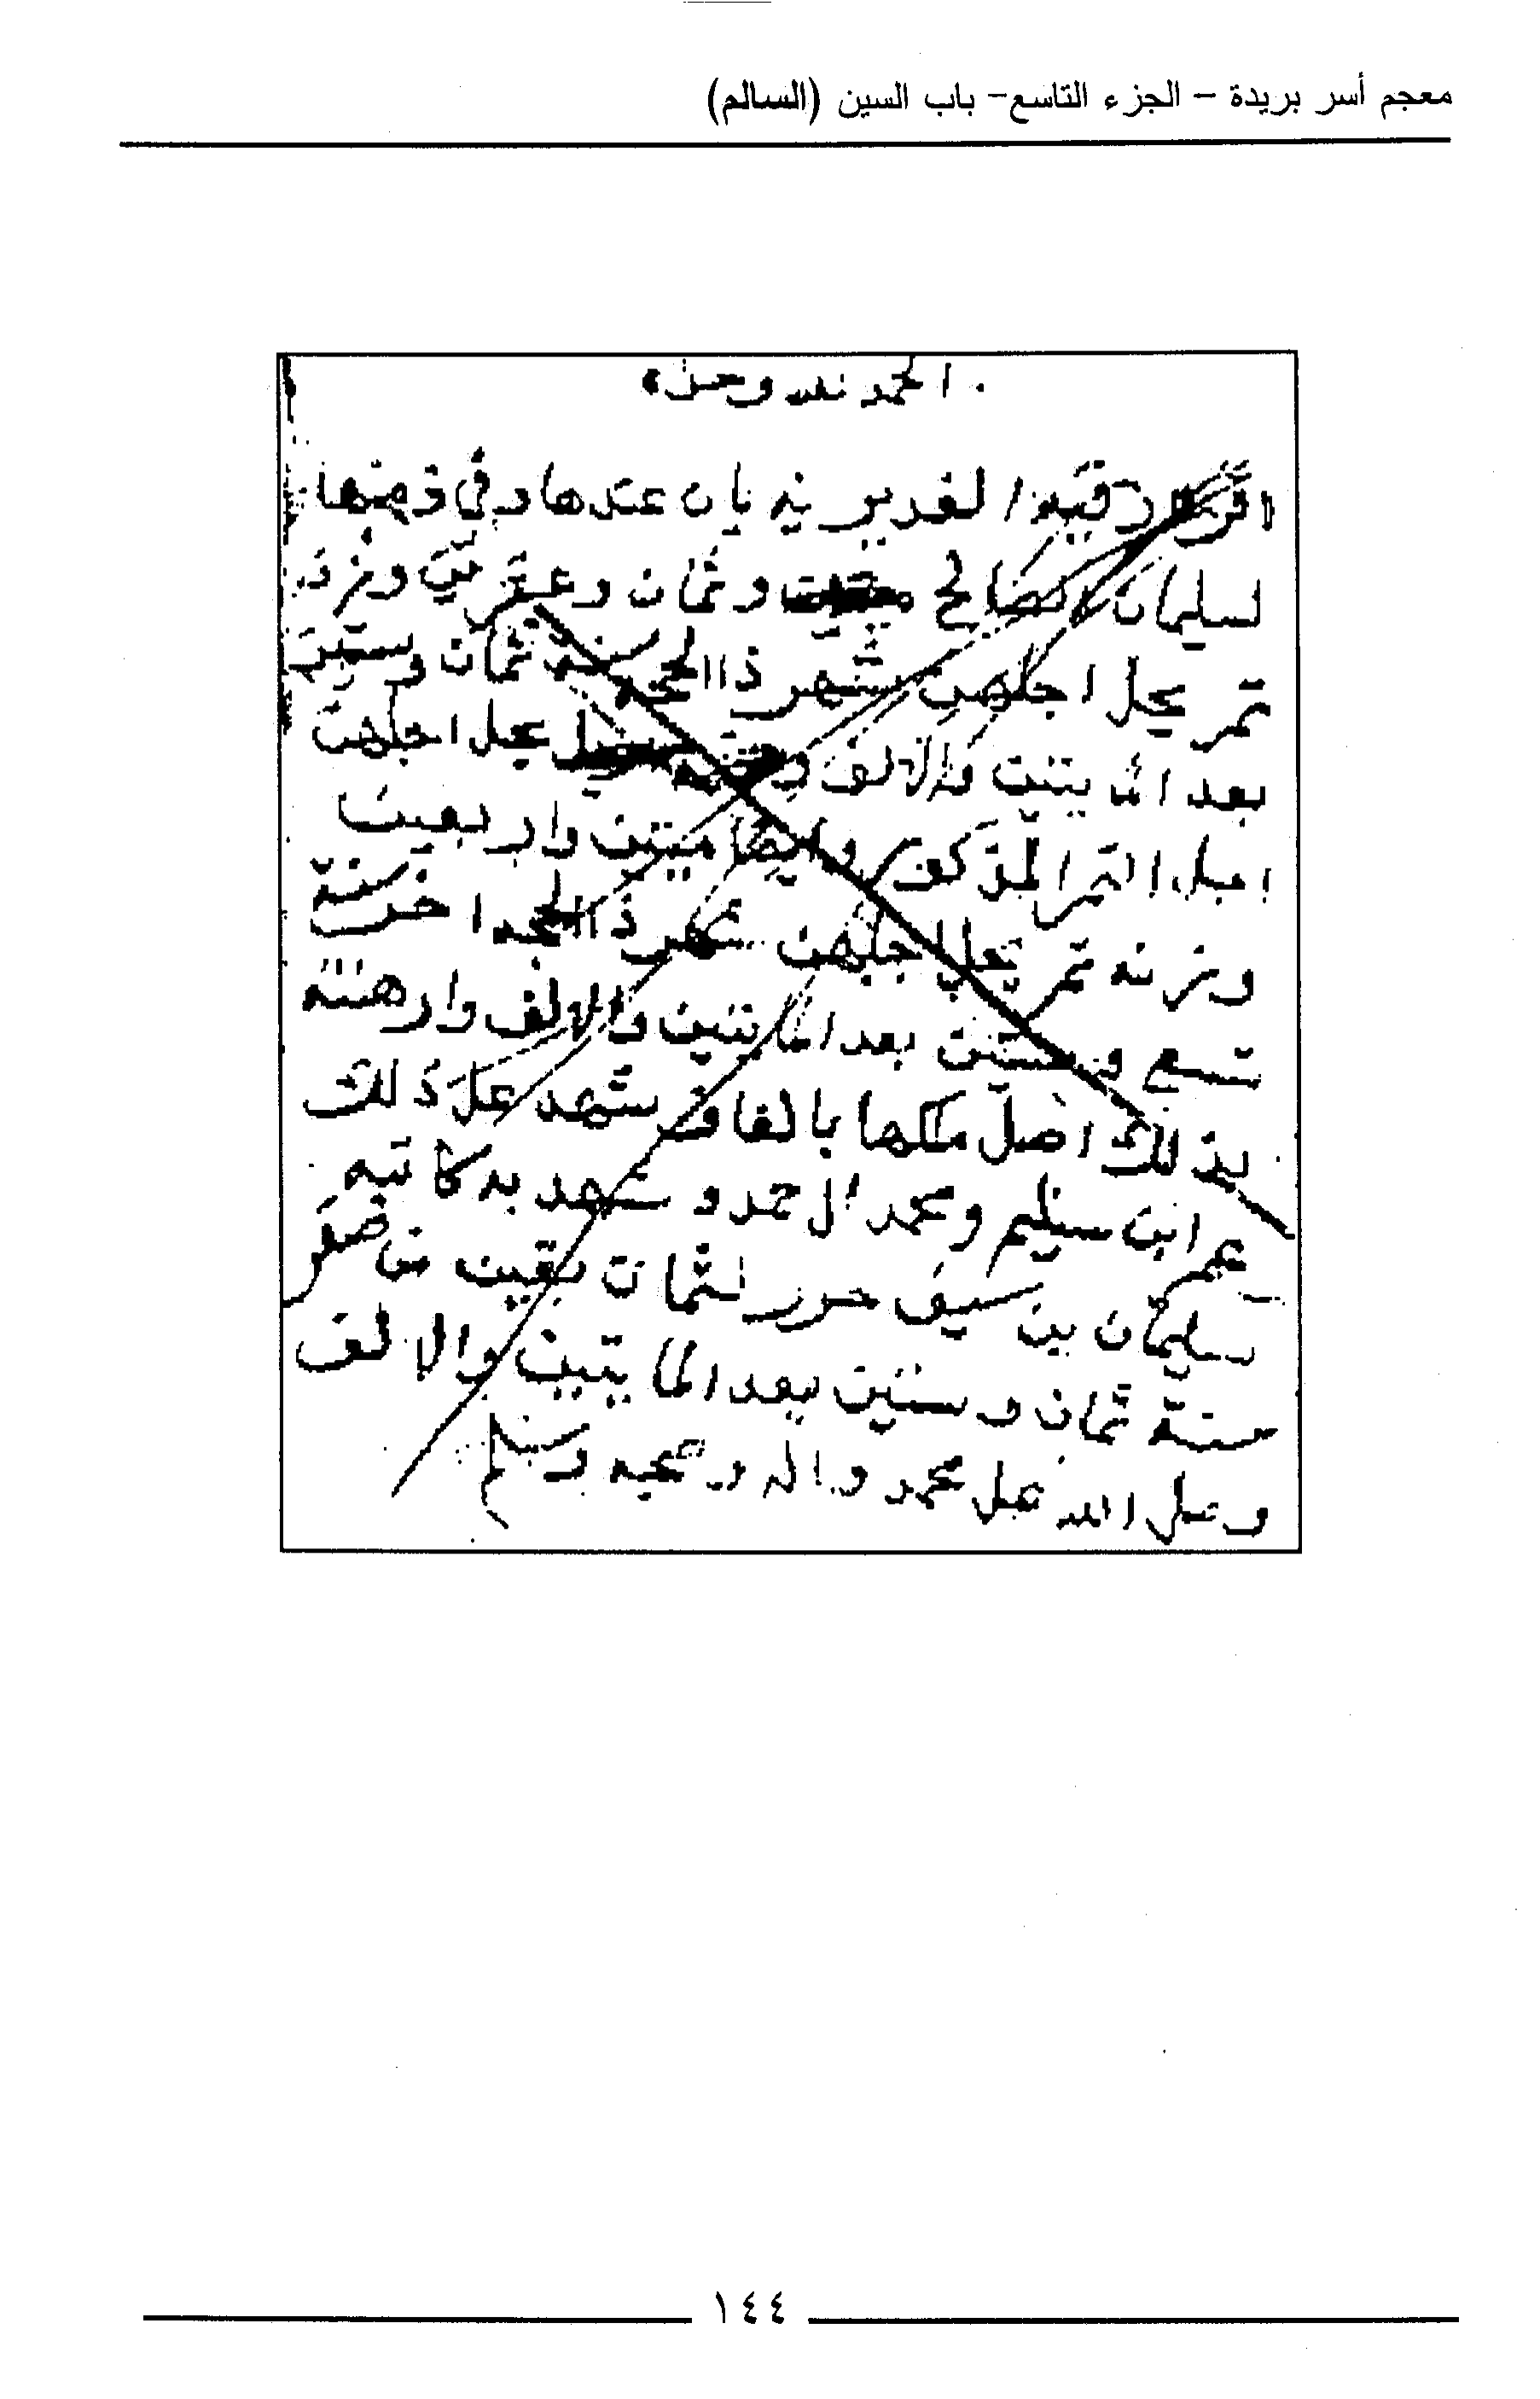 معجم أسر بريدة – الجزء التاسع– باب السين (السالم)
الحمد لله وحده
رقيه الغديريه بان عندها وفي ذمتها
لسليمان الصالح وثمان وعشرين وزنة
تمر يحل اجلهن شهر ذا الحجه سنة ثمان وستين
بعد المايتين والالف يحل اجلهن
اجل التمر المذكور وايضا ميتين واربعين
وزنه تمر يحل اجلهن شهر ذا الحجه اخر سنة
تسع وستين بعد المايتين والالف وارهنته
بذلك اصل ملكها شهد على ذلك
عمر ابن سليم ومحمد ال حمد وشهد به كاتبه
سليمان بن سيف حرر لثمان بقين من صفر
سنة ثمان وستين بعد المايتين والالف
وصلى الله على محمد واله وصحبه وسلم
١٤٤